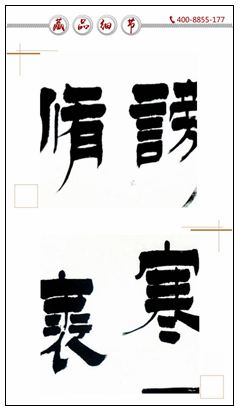 藏品细节
400-8855-177
謗
脩
寒
裘